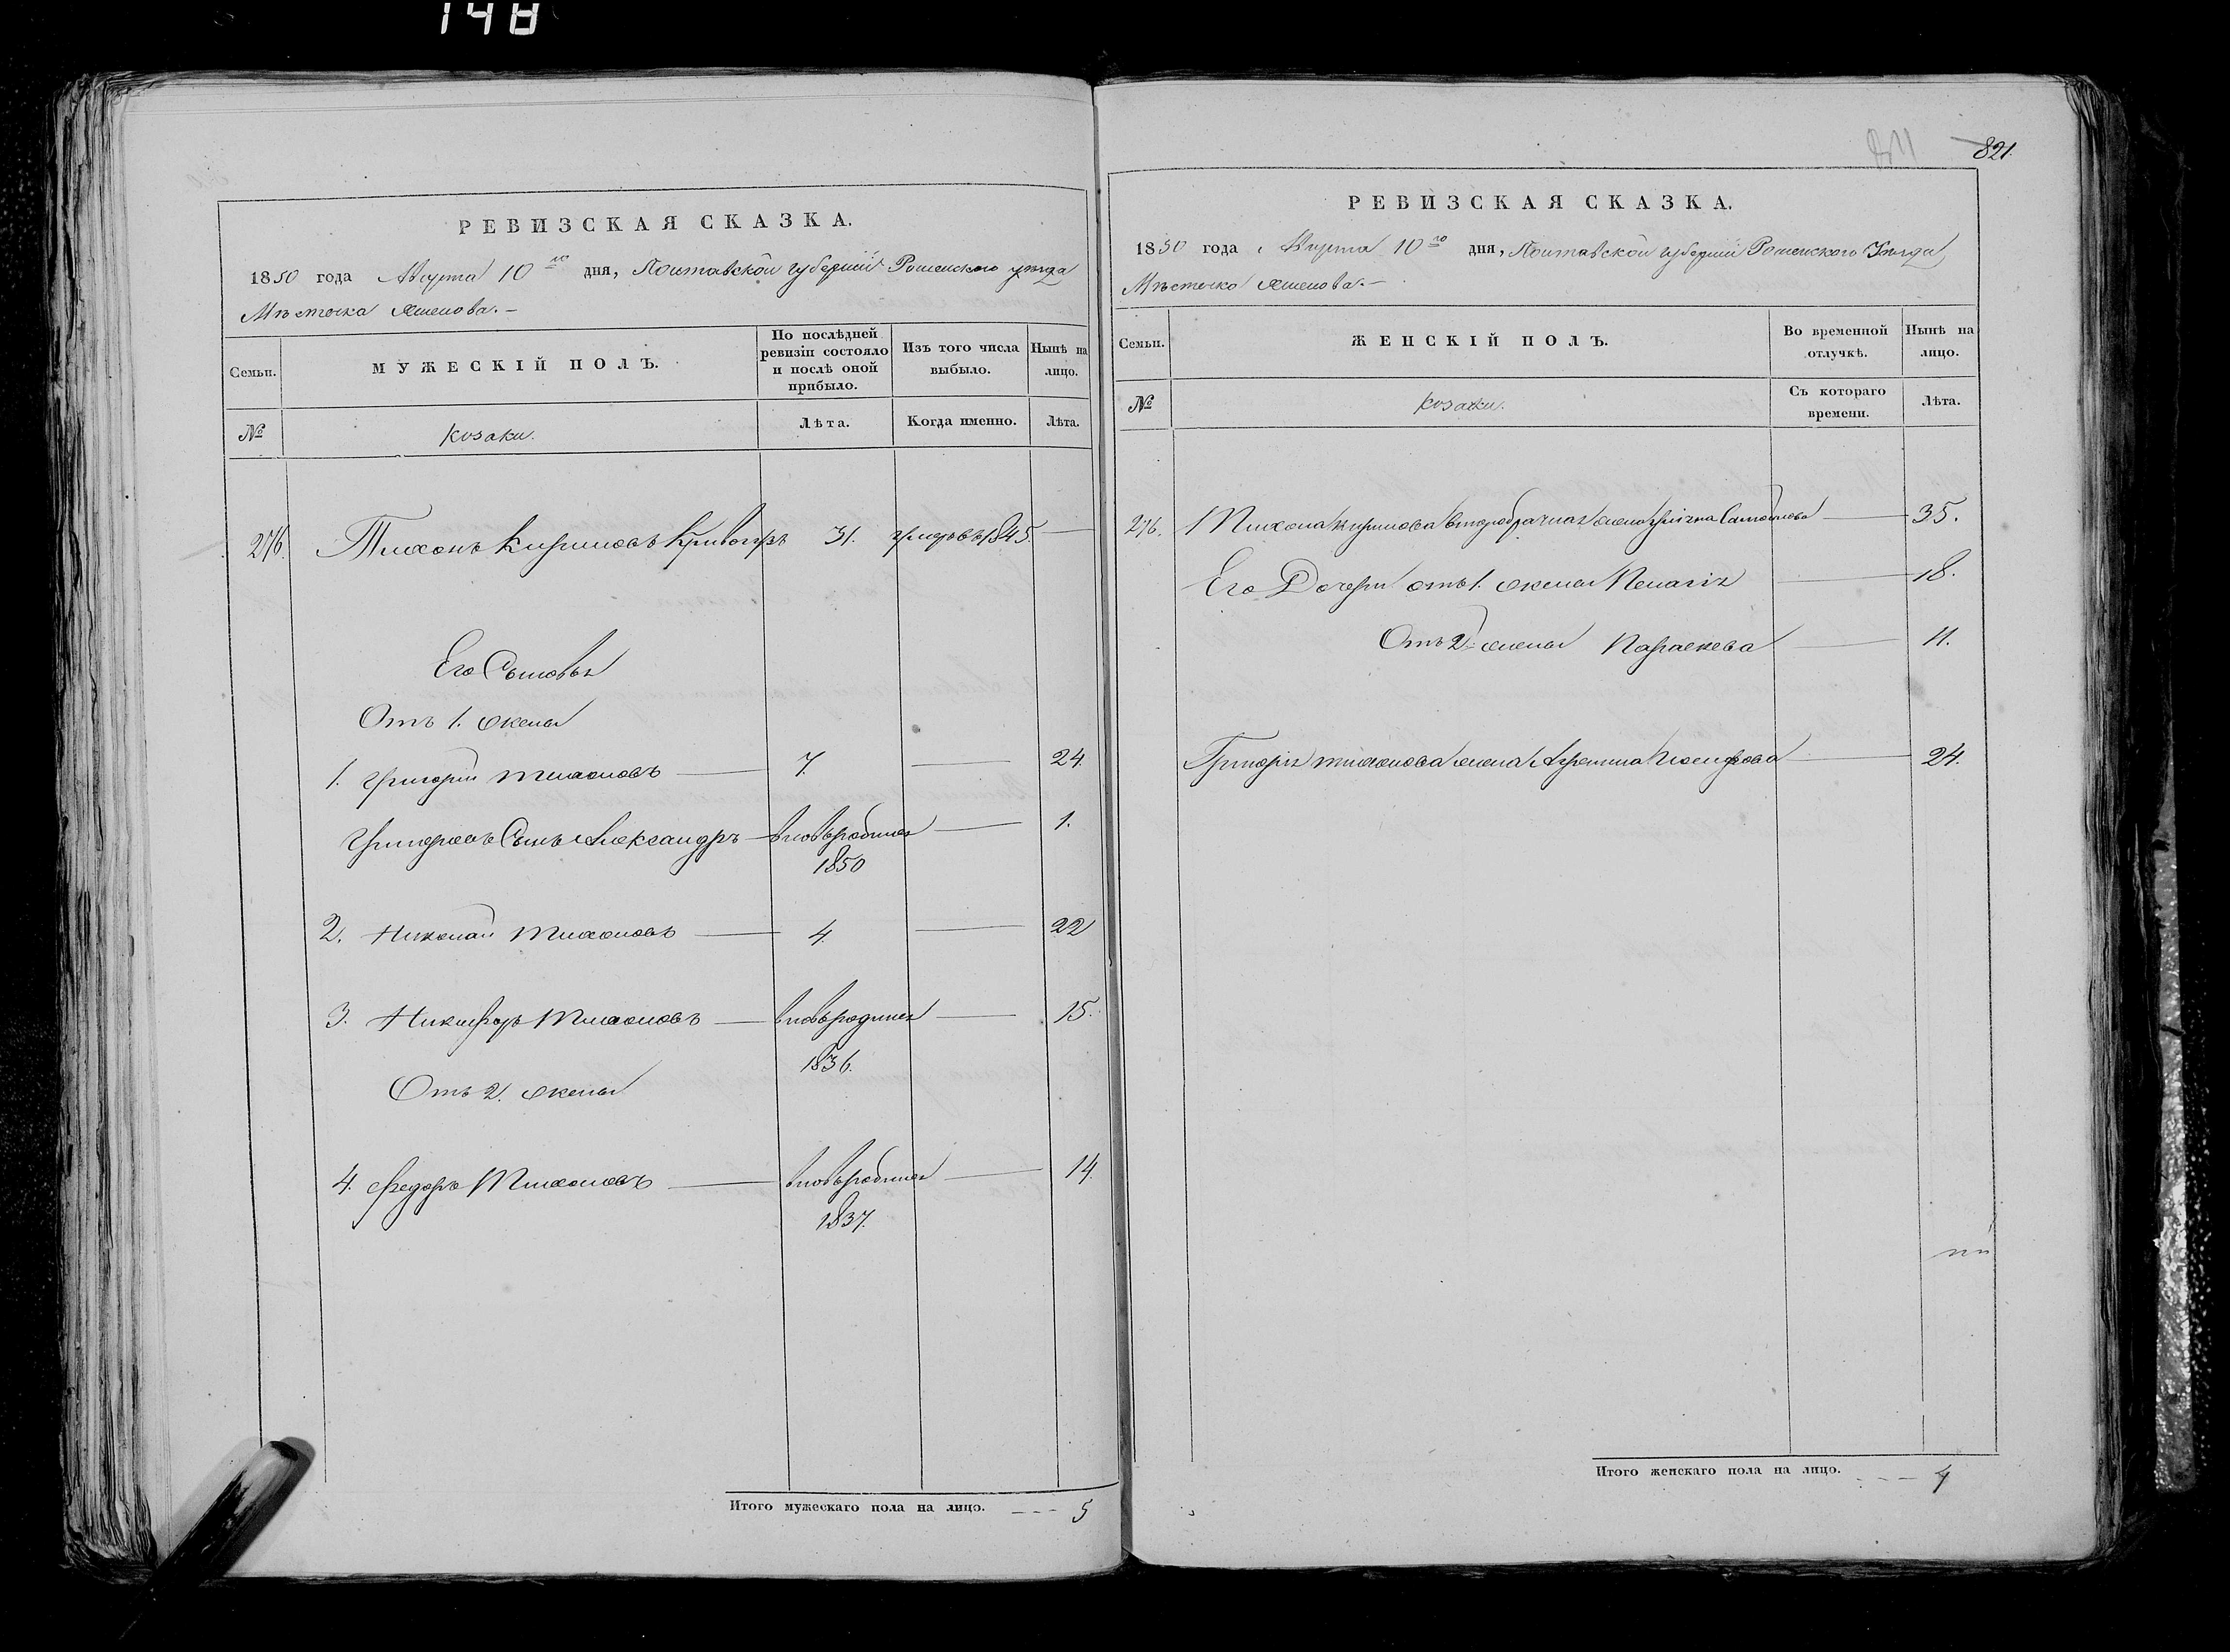 148
РЕВИЗСКАЯ СКАЗКА.
1850 года Августа 10го дня, Полтавской губернии Роменского уѣзда
Мѣстечка
Семьи.
МУЖЕСКІЙ ПОЛЪ.
По послѣдней ревизіи состояло и послѣ оной прибыло.
Изъ того числа выбыло.
Нынѣ на лицо.
№
козаки.
Лѣта.
Когда именно.
Лѣта.
276. Тихонъ Кириловъ 31. 1845.
Его Сыновья
Отъ 1. жены
1. Григорій Тихоновъ 7. 24.
Григорiевъ Сынъ Александръ вновьродился 1.
1850
2. Николай Тихоновъ 4. 22
3. Никифоръ Тихоновъ вновьродился 15.
1836.
Отъ 2. жены
4. Федоръ Тихоновъ вновьродился 14.
1837.
Итого мужескаго пола на лицо. 5
821.
РЕВИЗСКАЯ СКАЗКА.
1850 года Августа 10го дня, Полтавской губернии Роменского Уѣзда
Мѣстечка
Семьи.
ЖЕНСКІЙ ПОЛЪ.
Во временной отлучкѣ.
Нынѣ на лицо.
№
козачки.
Съ котораго времени.
Лѣта.
276. Тихона Кирилова второбрачная жена 35.
Его Дочери отъ 1. жены Пелагія 18.
Отъ 2. жены Параскева 11.
Григорія Тихонова жена 24.
Итого женскаго пола на лицо. 4